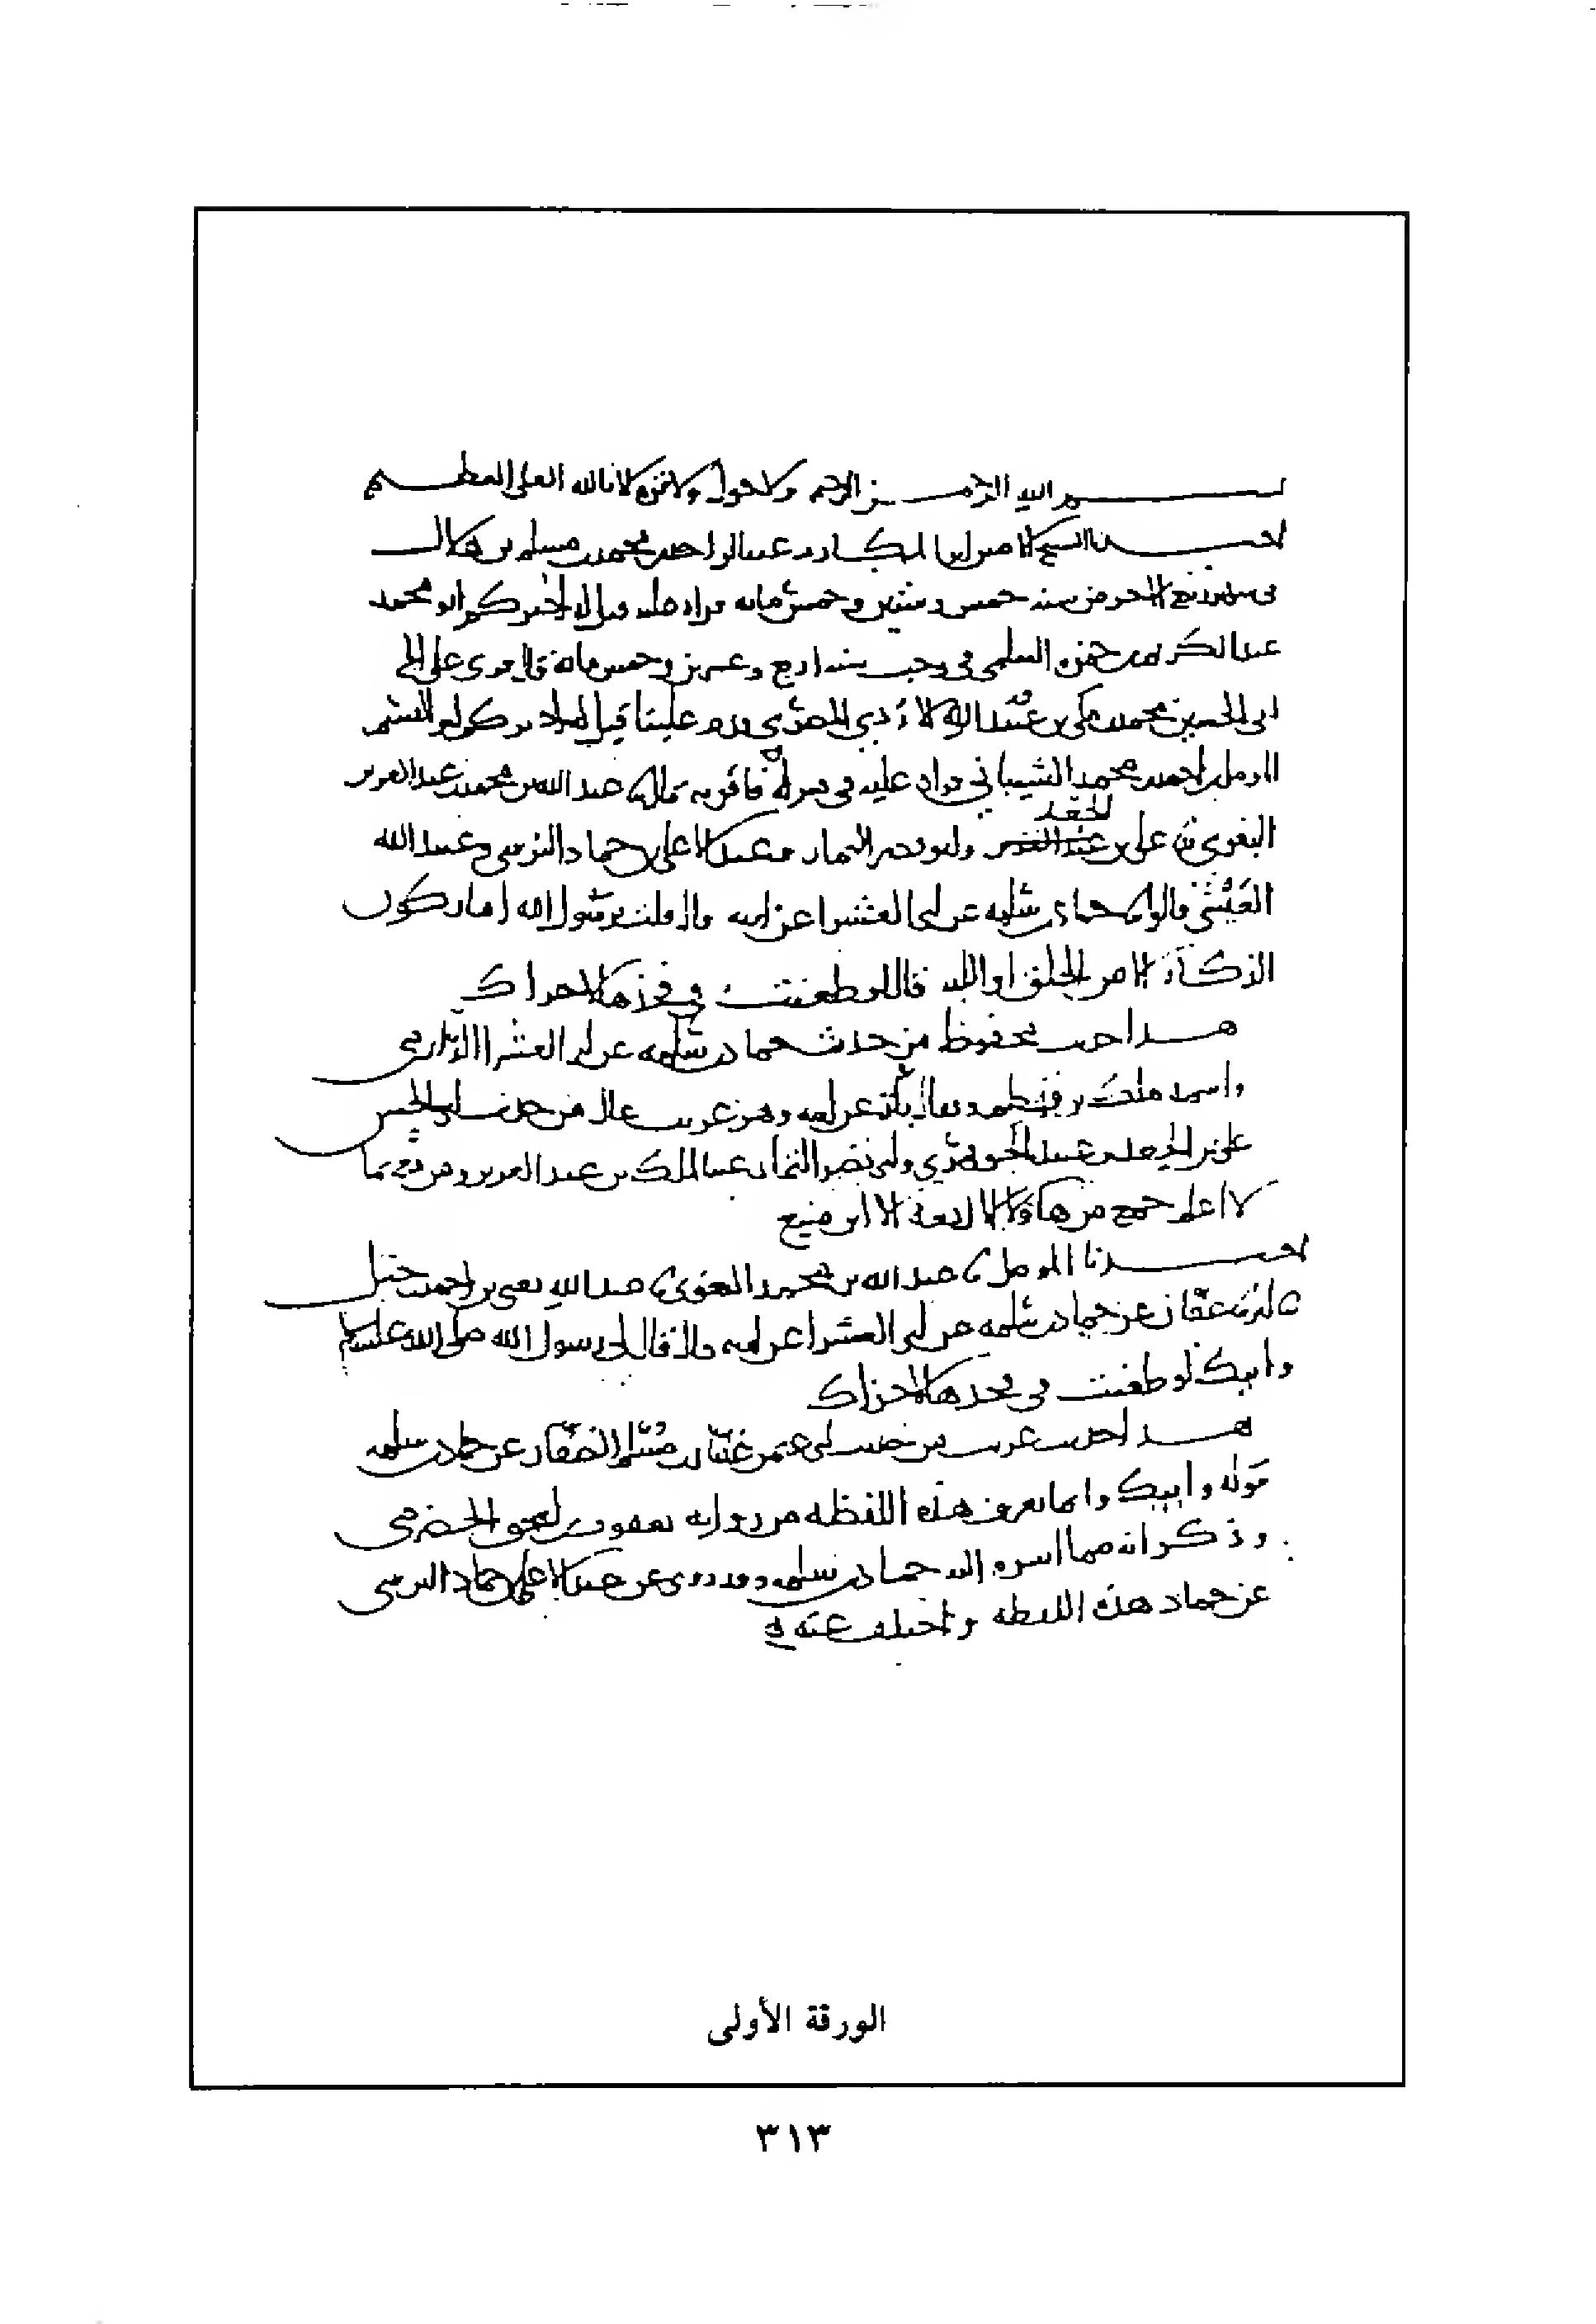 بسم الله الرحمن الرحيم ولا حول ولا قوة الا بالله العلي العظيم
اخبرنا الشيخ الامين ابو المكارم عبد الواحد بن محمد بن مسلم بن هلال
في سنة خمس وستين وخمس مائة قراة عليه قيل له اخبركم ابو محمد
عبد الكريم بن حمزة السلمي في رجب سنة اربع وعشرين وخمس مائة قال قرئ على
ابي الحسين محمد بن مكي بن عثمان الازدي المصري قدم علينا قيل له
المؤمل بن احمد بن محمد الشيباني قراة عليه في منزله فاقر به نا عبد الله بن محمد بن عبد العزيز
البغوي نا علي بن الجعد وابو نصر التمار وعبد الاعلى بن حماد النرسي وعبيد الله
العيشي قالوا نا حماد بن سلمة عن ابي العشرا عن ابيه قال قلت يرسول الله اما تكون
الذكاة الا من الحلق او اللبة قال لو طعنت في فخذها لاجزاك
هذا حديث محفوظ من حديث حماد بن سلمة عن ابي العشرا الدارمي
واسمه مالك بن قهطم ويقال عن ابيه وهو غريب عال من حديث ابي الحسن
علي بن الجعد بن عبيد الجوهري وابي نصر التمار عبد الملك بن عبد العزيز
لا اعلم جمع من هاولا الاربعة الا ابن منيع
اخبرنا المومل نا عبد الله بن محمد البغوي نا عبد الله يعني بن احمد بن حنبل
نا عفان عن حماد بن سلمة عن ابي العشرا عن ابيه قال قال لي رسول الله صلى الله عليه وسلم
وابيك لو طعنت في فخذها لاجزاك
هذا حديث غريب من حديث ابي عثمن عفان بن مسلم الصفار عن حماد بن سلمة
قوله وابيك وانما تعرف هذه اللفظة من رواية يعقوب بن اسحق الحضرمي
وذكر انه مما اسره اليه حماد بن سلمة وقد روي عن عبد الاعلى بن حماد النرسي
عن حماد هذه اللفظة واختلف عنه في
الورقة الأولى
٣١٣